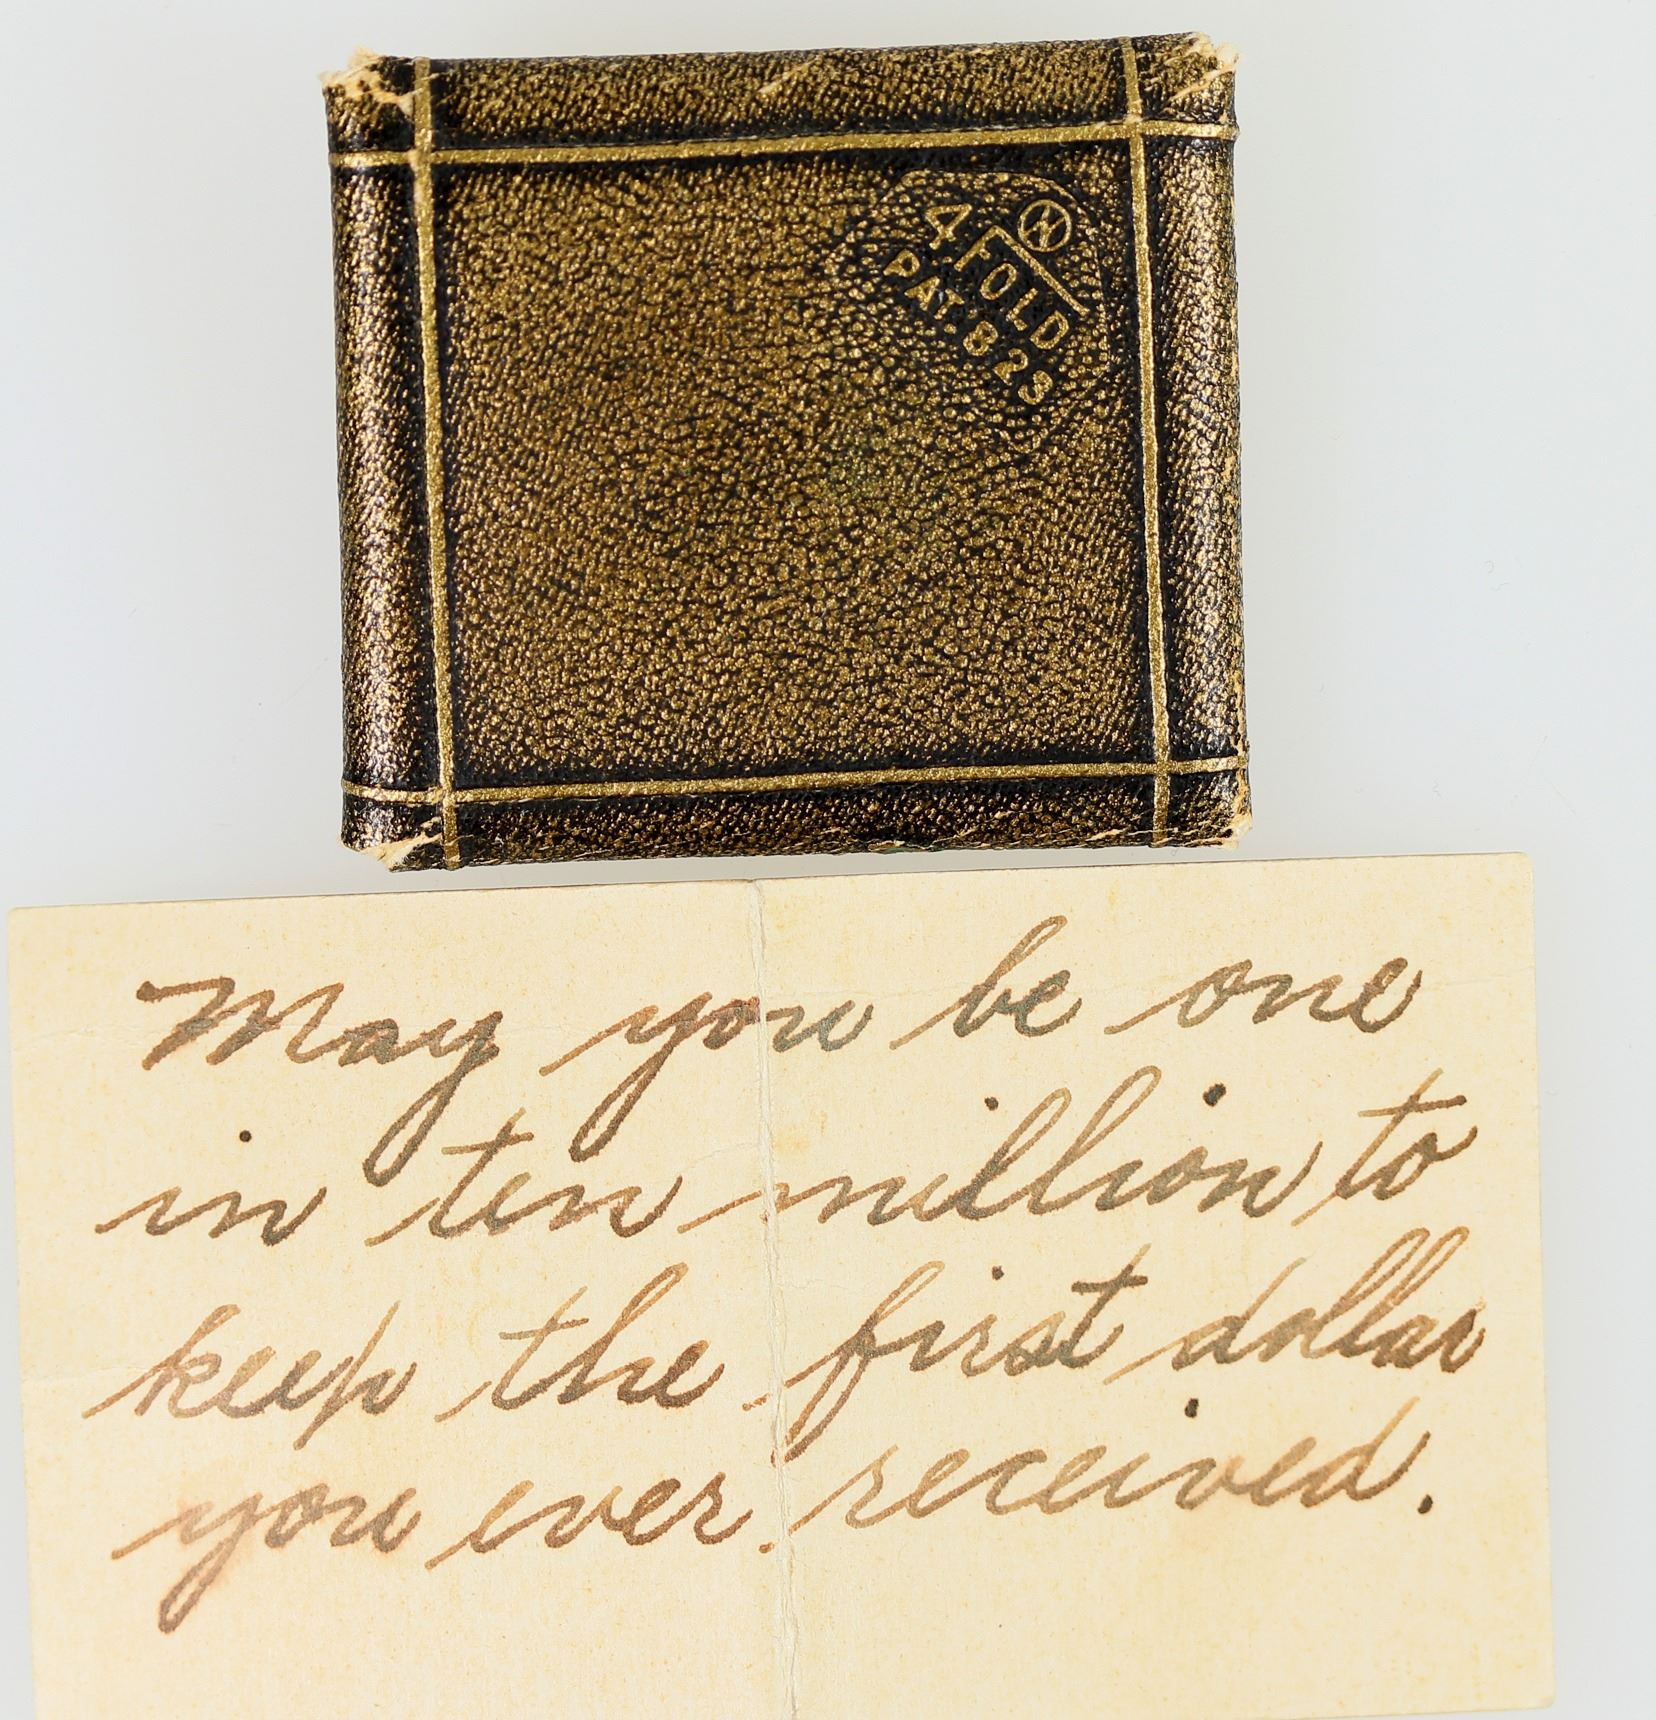 4 FOLD
PAT. 823
May you be one
in ten million to
keep the first dollar
you ever received.